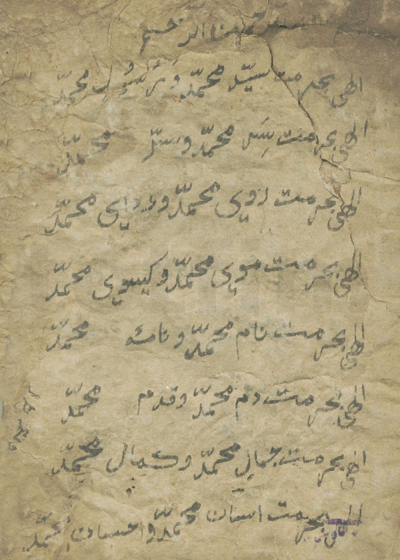 الرحمن الرحیم
الهی بحرمت سیّد محمّد و محمّد
الهی بحرمت سِر محمّد و سرّ محمّد
الهی بحرمت روی محمّد و محمّد
الهی بحرمت موی محمّد و کیسوی محمّد
الهی بحرمت نام محمّد و محمّد
الهی بحرمت دم محمّد و قدم محمّد
الهی بحرمت جمال محمّد و کمال محمّد
الهی بحرمت محمّد و احسان محمّد